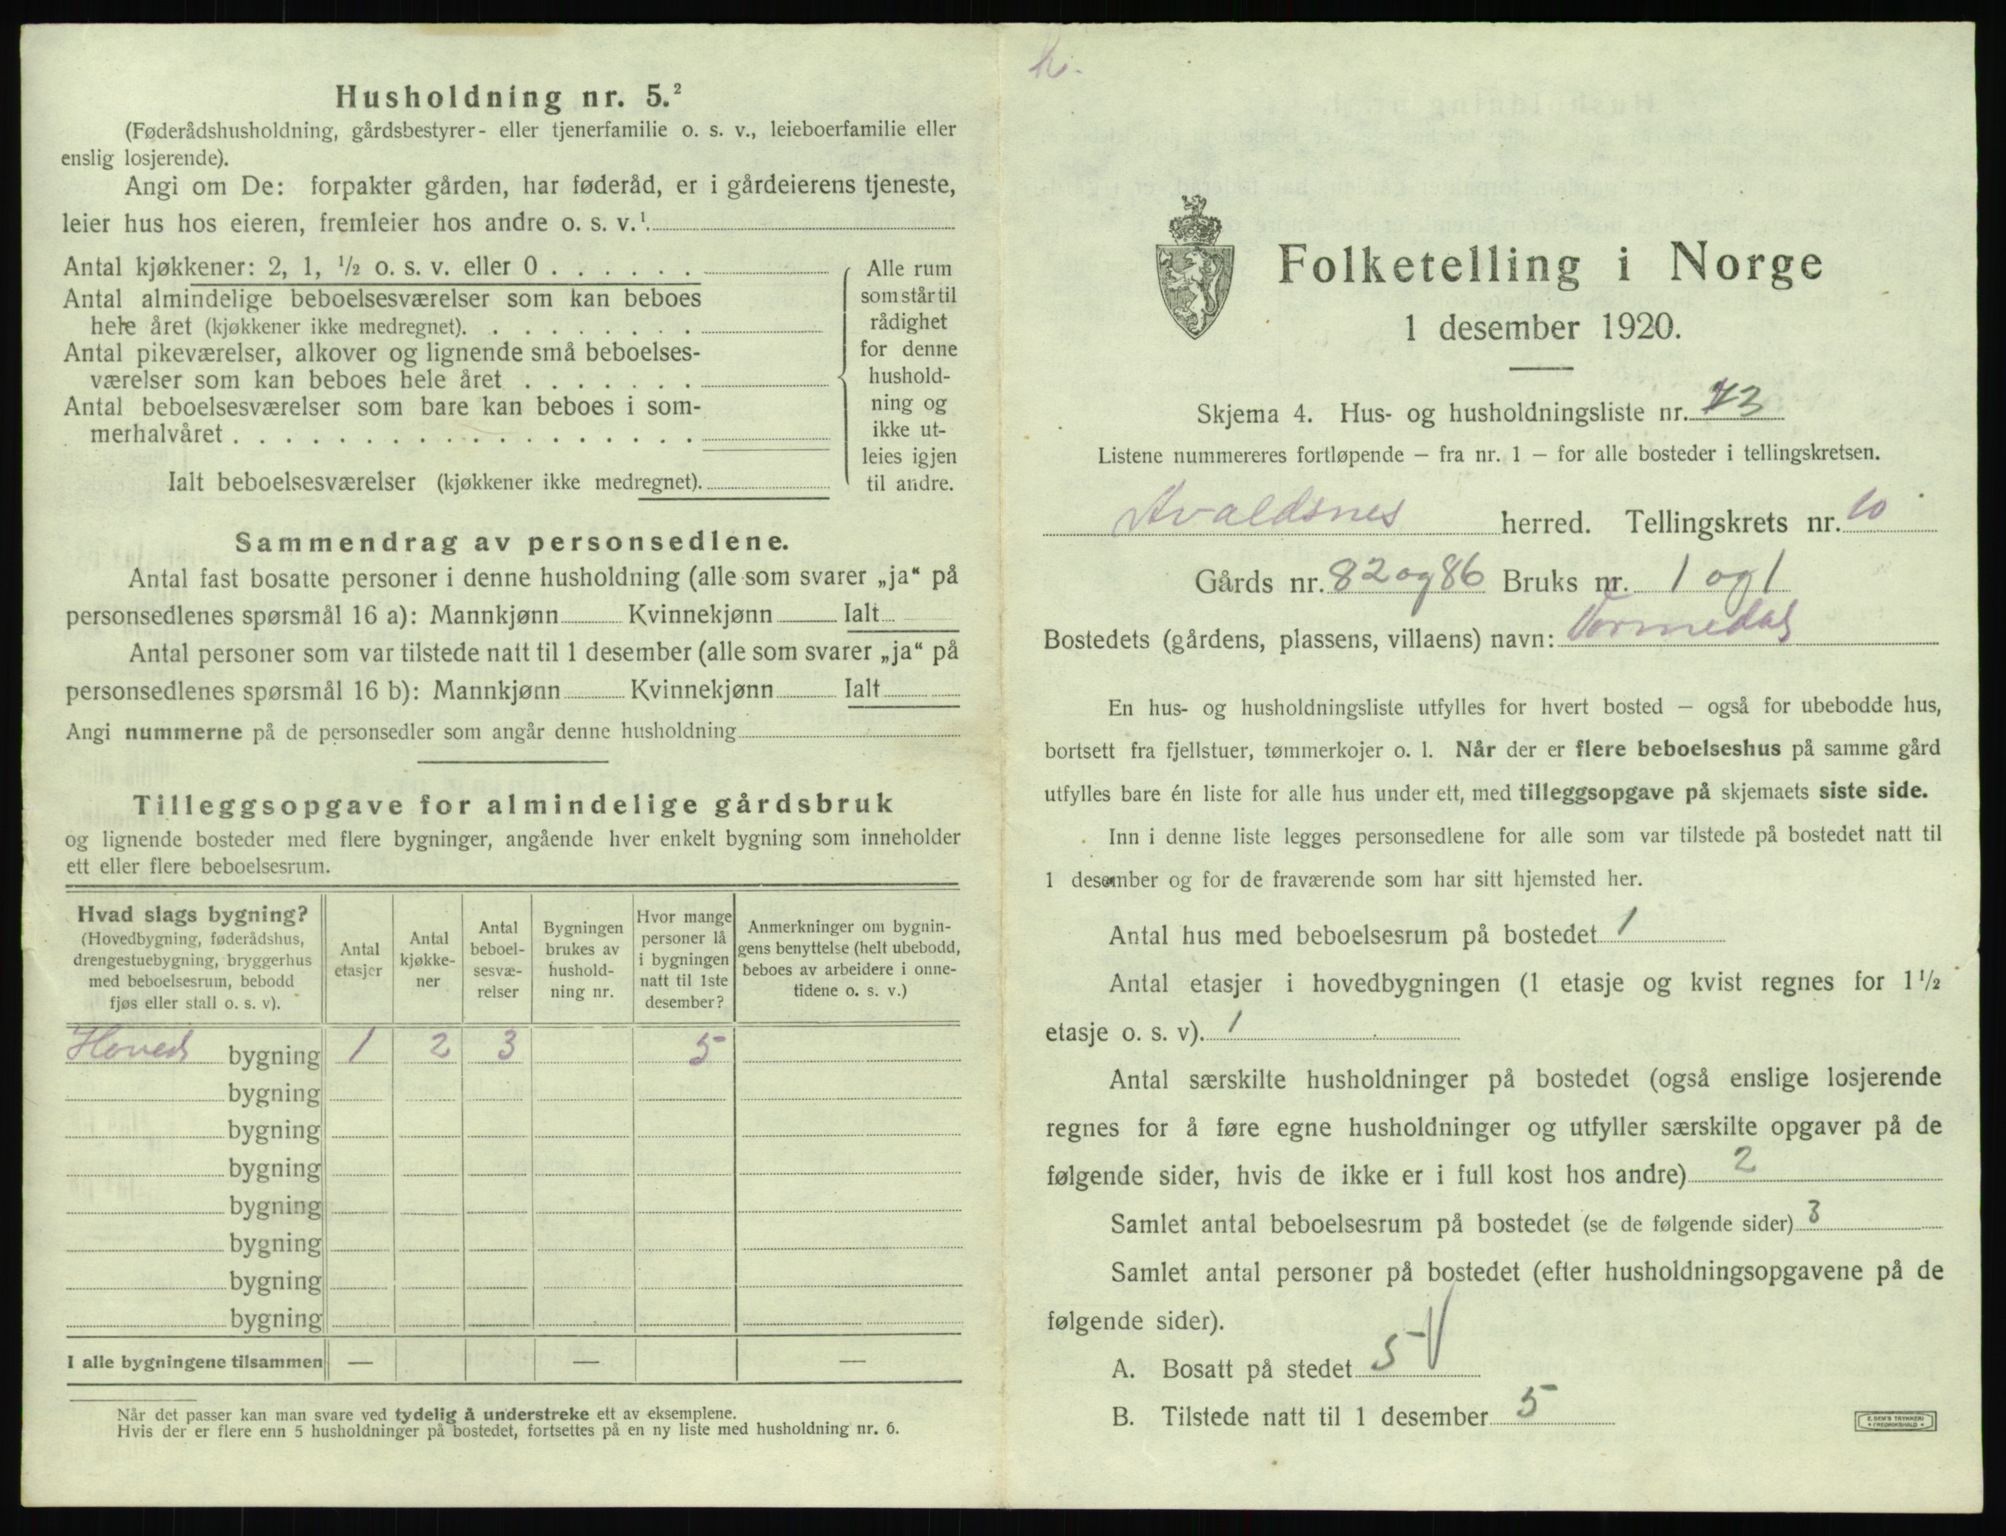 Husholdning nr. 5.²
(Føderådshusholdning, gårdsbestyrer- eller tjenerfamilie o. s. v., leieboerfamilie eller
enslig losjerende).
Angi om De: forpakter gården, har føderåd, er i gårdeierens tjeneste,
leier hus hos eieren, fremleier hos andre o. s. v.¹
Antal kjøkkener: 2, 1, ½ o. s. v. eller 0 . . . . . .
Antal almindelige beboelsesværelser som kan beboes
hele året (kjøkkener ikke medregnet). . . . . . . . .
Antal pikeværelser, alkover og lignende små beboelses-
værelser som kan beboes hele året . . . . . . .
Antal beboelsesværelser som bare kan beboes i som-
merhalvåret . . . . . . . . . . . . . . . . . .
Ialt beboelsesværelser (kjøkkener ikke medregnet).
Alle rum
som står til
rådighet
for denne
hushold-
ning og
ikke ut-
leies igjen
til andre.
Sammendrag av personsedlene.
Antal fast bosatte personer i denne husholdning (alle som svarer „ja“ på
personsedlenes spørsmål 16 a): Mannkjønn Kvinnekjønn Ialt
Antal personer som var tilstede natt til 1 desember (alle som svarer „ja“ på
personsedlenes spørsmål 16 b): Mannkjønn Kvinnekjønn Ialt
Angi nummerne på de personsedler som angår denne husholdning
Tilleggsopgave for almindelige gårdsbruk
og lignende bosteder med flere bygninger, angående hver enkelt bygning som inneholder
ett eller flere beboelsesrum.
Hvad slags bygning?
(Hovedbygning, føderådshus,
drengestuebygning, bryggerhus
med beboelsesrum, bebodd
fjøs eller stall o. s. v).
Antal
etasjer
Antal
kjøkke-
ner
Antal
beboel-
sesvæ-
relser
Bygningen
brukes av
hushold-
ning nr.
Hvor mange
personer lå
i bygningen
natt til 1ste
desember?
Anmerkninger om bygnin-
gens benyttelse (helt ubebodd,
beboes av arbeidere i onne-
tidene o. s. v.)
Hoved bygning 1 2 3 5
bygning
bygning
bygning
bygning
bygning
bygning
bygning
I alle bygningene tilsammen — — —
Når det passer kan man svare ved tydelig å understreke ett av eksemplene.
Hvis der er flere enn 5 husholdninger på bostedet, fortsettes på en ny liste med husholdning nr. 6.
Folketelling i Norge
1 desember 1920.
Skjema 4. Hus- og husholdningsliste nr. 73
Listene nummereres fortløpende – fra nr. 1 – for alle bosteder i tellingskretsen.
Avaldsnes herred. Tellingskrets nr. 10
Gårds nr. 82 og 86 Bruks nr. 1 og 1
Bostedets (gårdens, plassens, villaens) navn: Vormedal
En hus- og husholdningsliste utfylles for hvert bosted – også for ubebodde hus,
bortsett fra fjellstuer, tømmerkojer o. l. Når der er flere beboelseshus på samme gård
utfylles bare én liste for alle hus under ett, med tilleggsopgave på skjemaets siste side.
Inn i denne liste legges personsedlene for alle som var tilstede på bostedet natt til
1 desember og for de fraværende som har sitt hjemsted her.
Antal hus med beboelsesrum på bostedet 1
Antal etasjer i hovedbygningen (1 etasje og kvist regnes for 1½
etasje o. s. v). 1
Antal særskilte husholdninger på bostedet (også enslige losjerende
regnes for å føre egne husholdninger og utfyller særskilte opgaver på de
følgende sider, hvis de ikke er i full kost hos andre) 2
Samlet antal beboelsesrum på bostedet (se de følgende sider) 3
Samlet antal personer på bostedet (efter husholdningsopgavene på de
følgende sider).
A. Bosatt på stedet 5
B. Tilstede natt til 1 desember 5
E. SEM'S TRYKKERI
FREDRIKSHALD